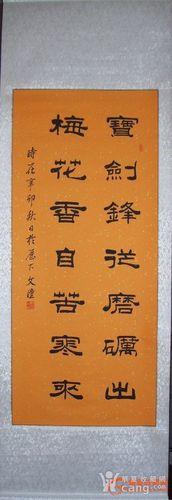 寶劍鋒從磨礪出
梅花香自苦寒來
時在辛卯秋日於歷下文
cang.com